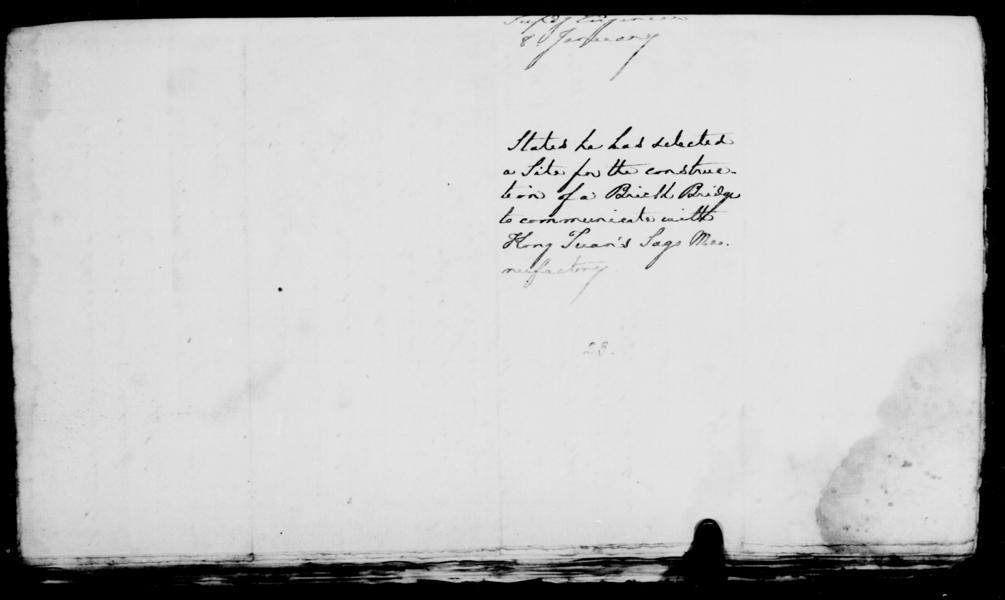 Supdg Engineer
8 January
States he has selected
a Site for the construc-
tion of a Brick Bridge
to communicate with
Hong Tuan's Sago Ma-
nufactory
23.